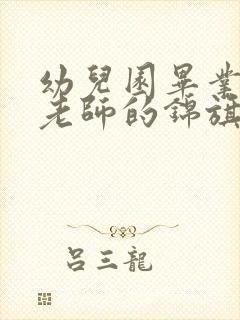 幼兒園畢業
老師的錦旗
呂三龍